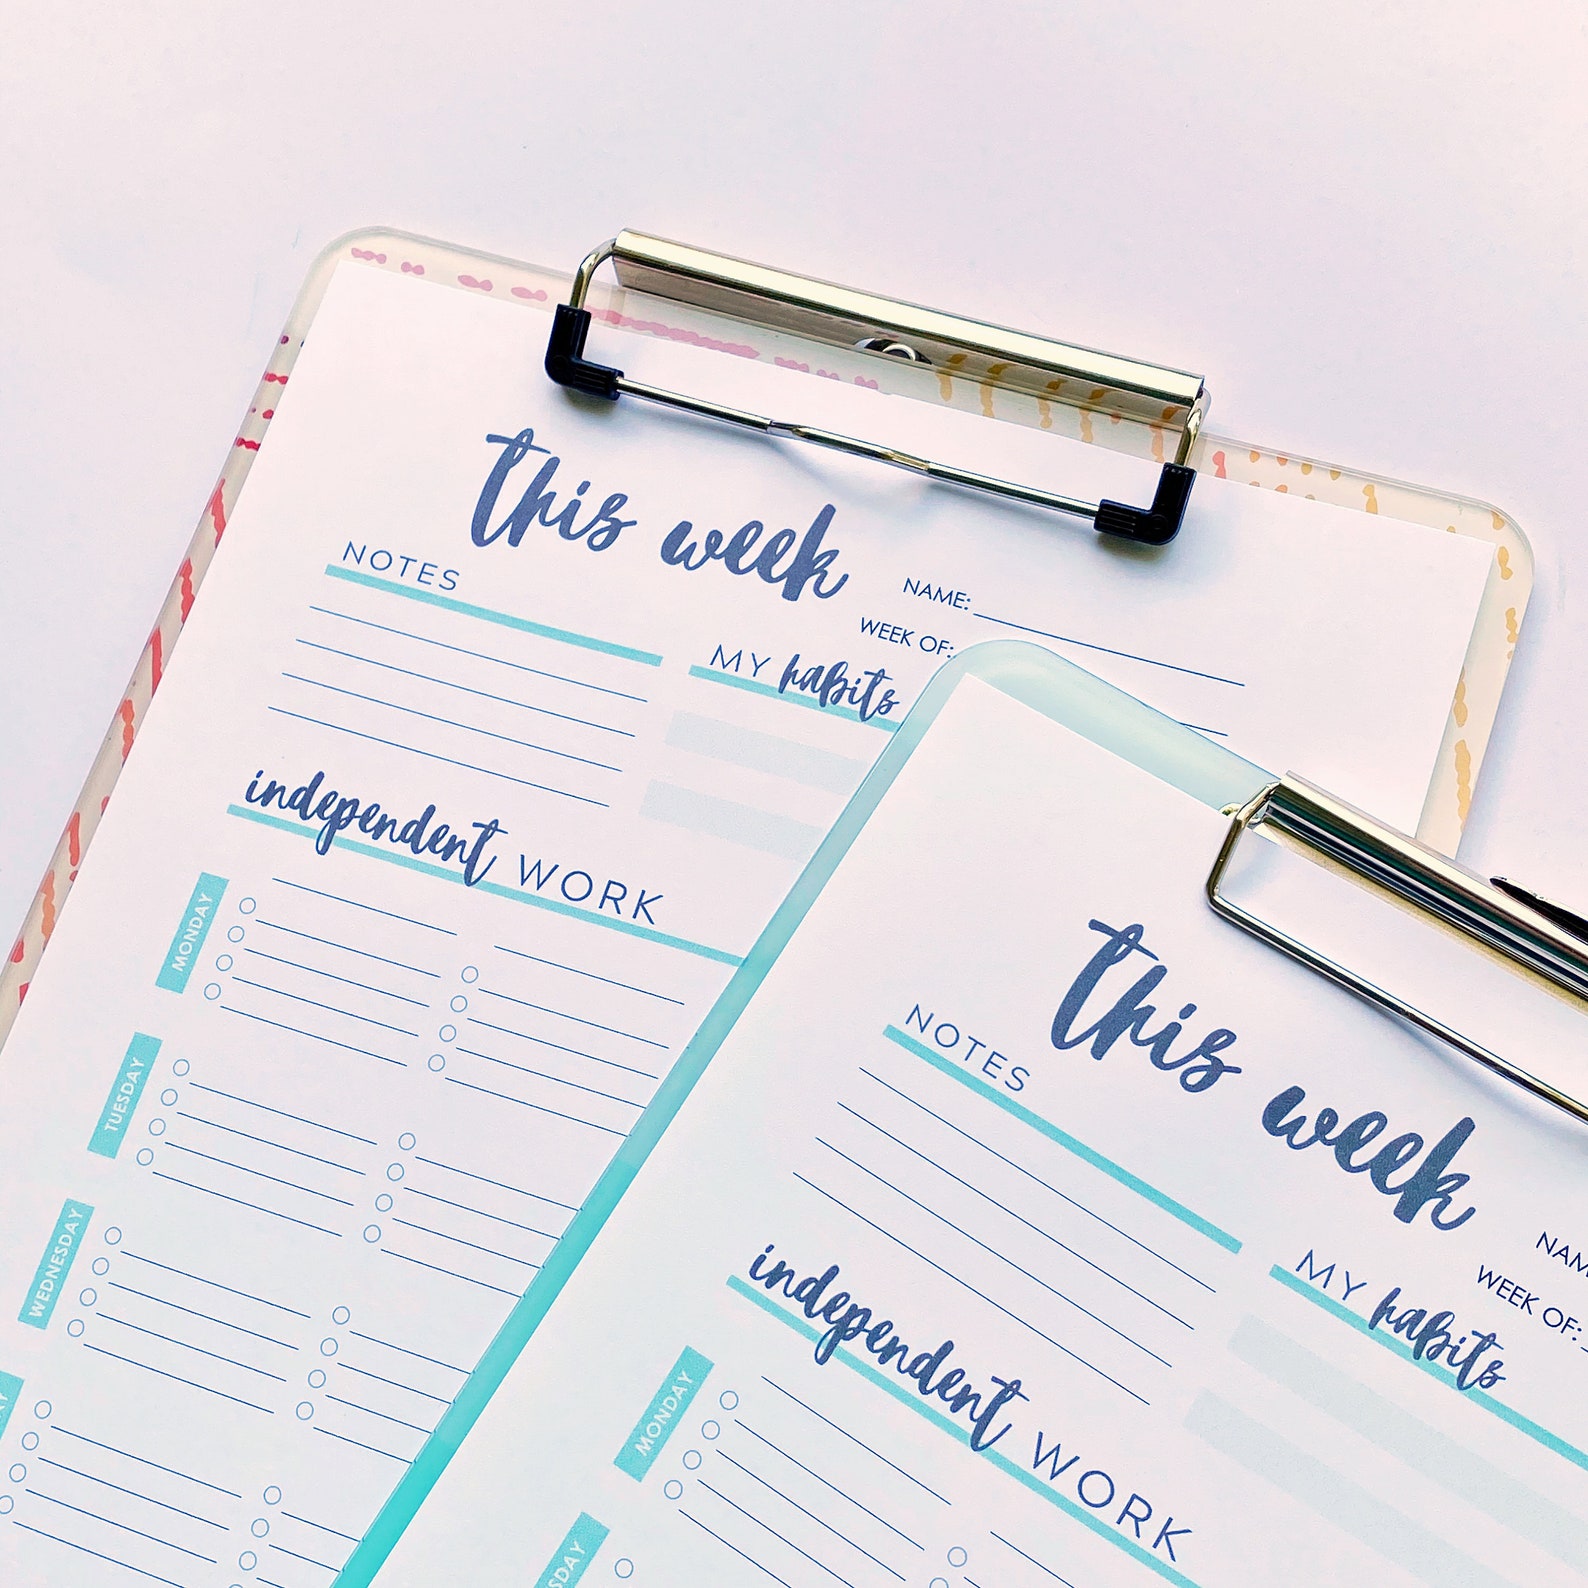 this week
NOTES
NAME:
WEEK OF:
MY habits
independent WORK
MONDAY
TUESDAY
WEDNESDAY
this week
NOTES
WEEK OF:
MY habits
independent WORK
MONDAY